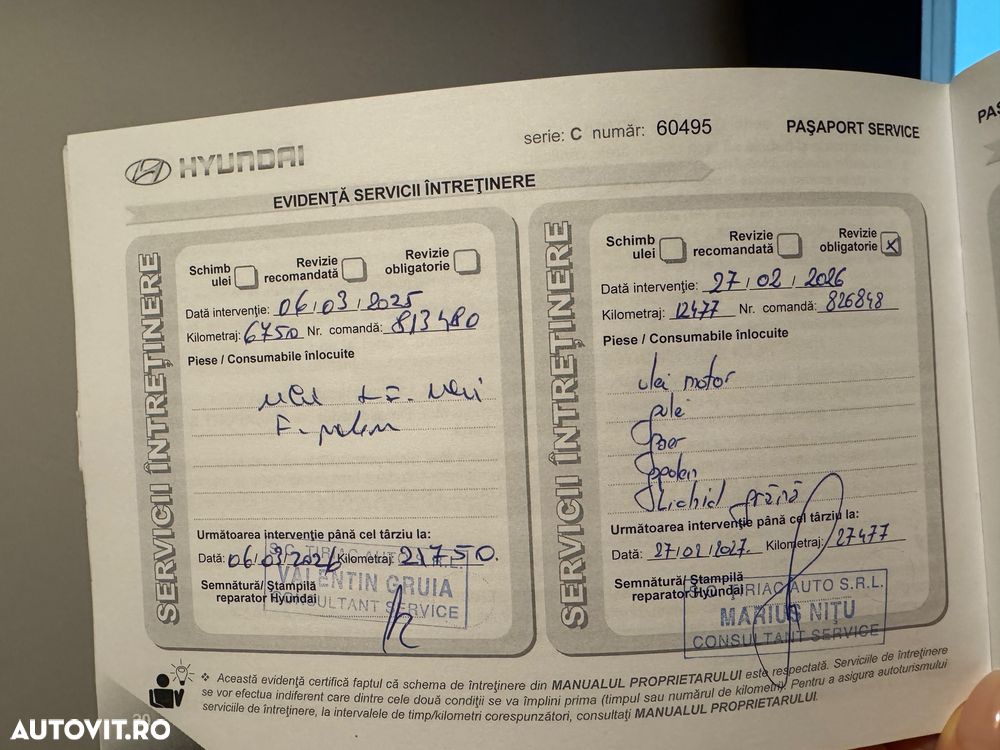 serie: C număr: 60495
PAŞAPORT SERVICE
HYUNDAI
EVIDENŢĂ SERVICII ÎNTREŢINERE
SERVICII ÎNTREŢINERE
Schimb ulei
Revizie recomandată
Revizie obligatorie
Dată intervenţie: 06/03/2025
Kilometraj: 6750 Nr. comandă: 813480
Piese / Consumabile înlocuite
ulei + F. ulei
F. polen
Următoarea intervenţie până cel târziu la:
Dată: 06/03/2026 Kilometraj: 21750.
Semnătură/ Ştampilă
reparator Hyundai
S.C. ŢIRIAC AUTO S.R.L.
VALENTIN GRUIA
CONSULTANT SERVICE
SERVICII ÎNTREŢINERE
Schimb ulei
Revizie recomandată
Revizie obligatorie x
Dată intervenţie: 27/02/2026
Kilometraj: 12477 Nr. comandă: 826848
Piese / Consumabile înlocuite
ulei motor
Lichid frână
Următoarea intervenţie până cel târziu la:
Dată: 27/02/2027. Kilometraj: 27477
Semnătură/ Ştampilă
reparator Hyundai
S.C. ŢIRIAC AUTO S.R.L.
MARIUS NIŢU
CONSULTANT SERVICE
❖ Această evidenţă certifică faptul că schema de întreţinere din MANUALUL PROPRIETARULUI este respectată. Serviciile de întreţinere
se vor efectua indiferent care dintre cele două condiţii se va împlini prima (timpul sau numărul de kilometri). Pentru a asigura autoturismului
serviciile de întreţinere, la intervalele de timp/kilometri corespunzători, consultaţi MANUALUL PROPRIETARULUI.
AUTOVIT.RO